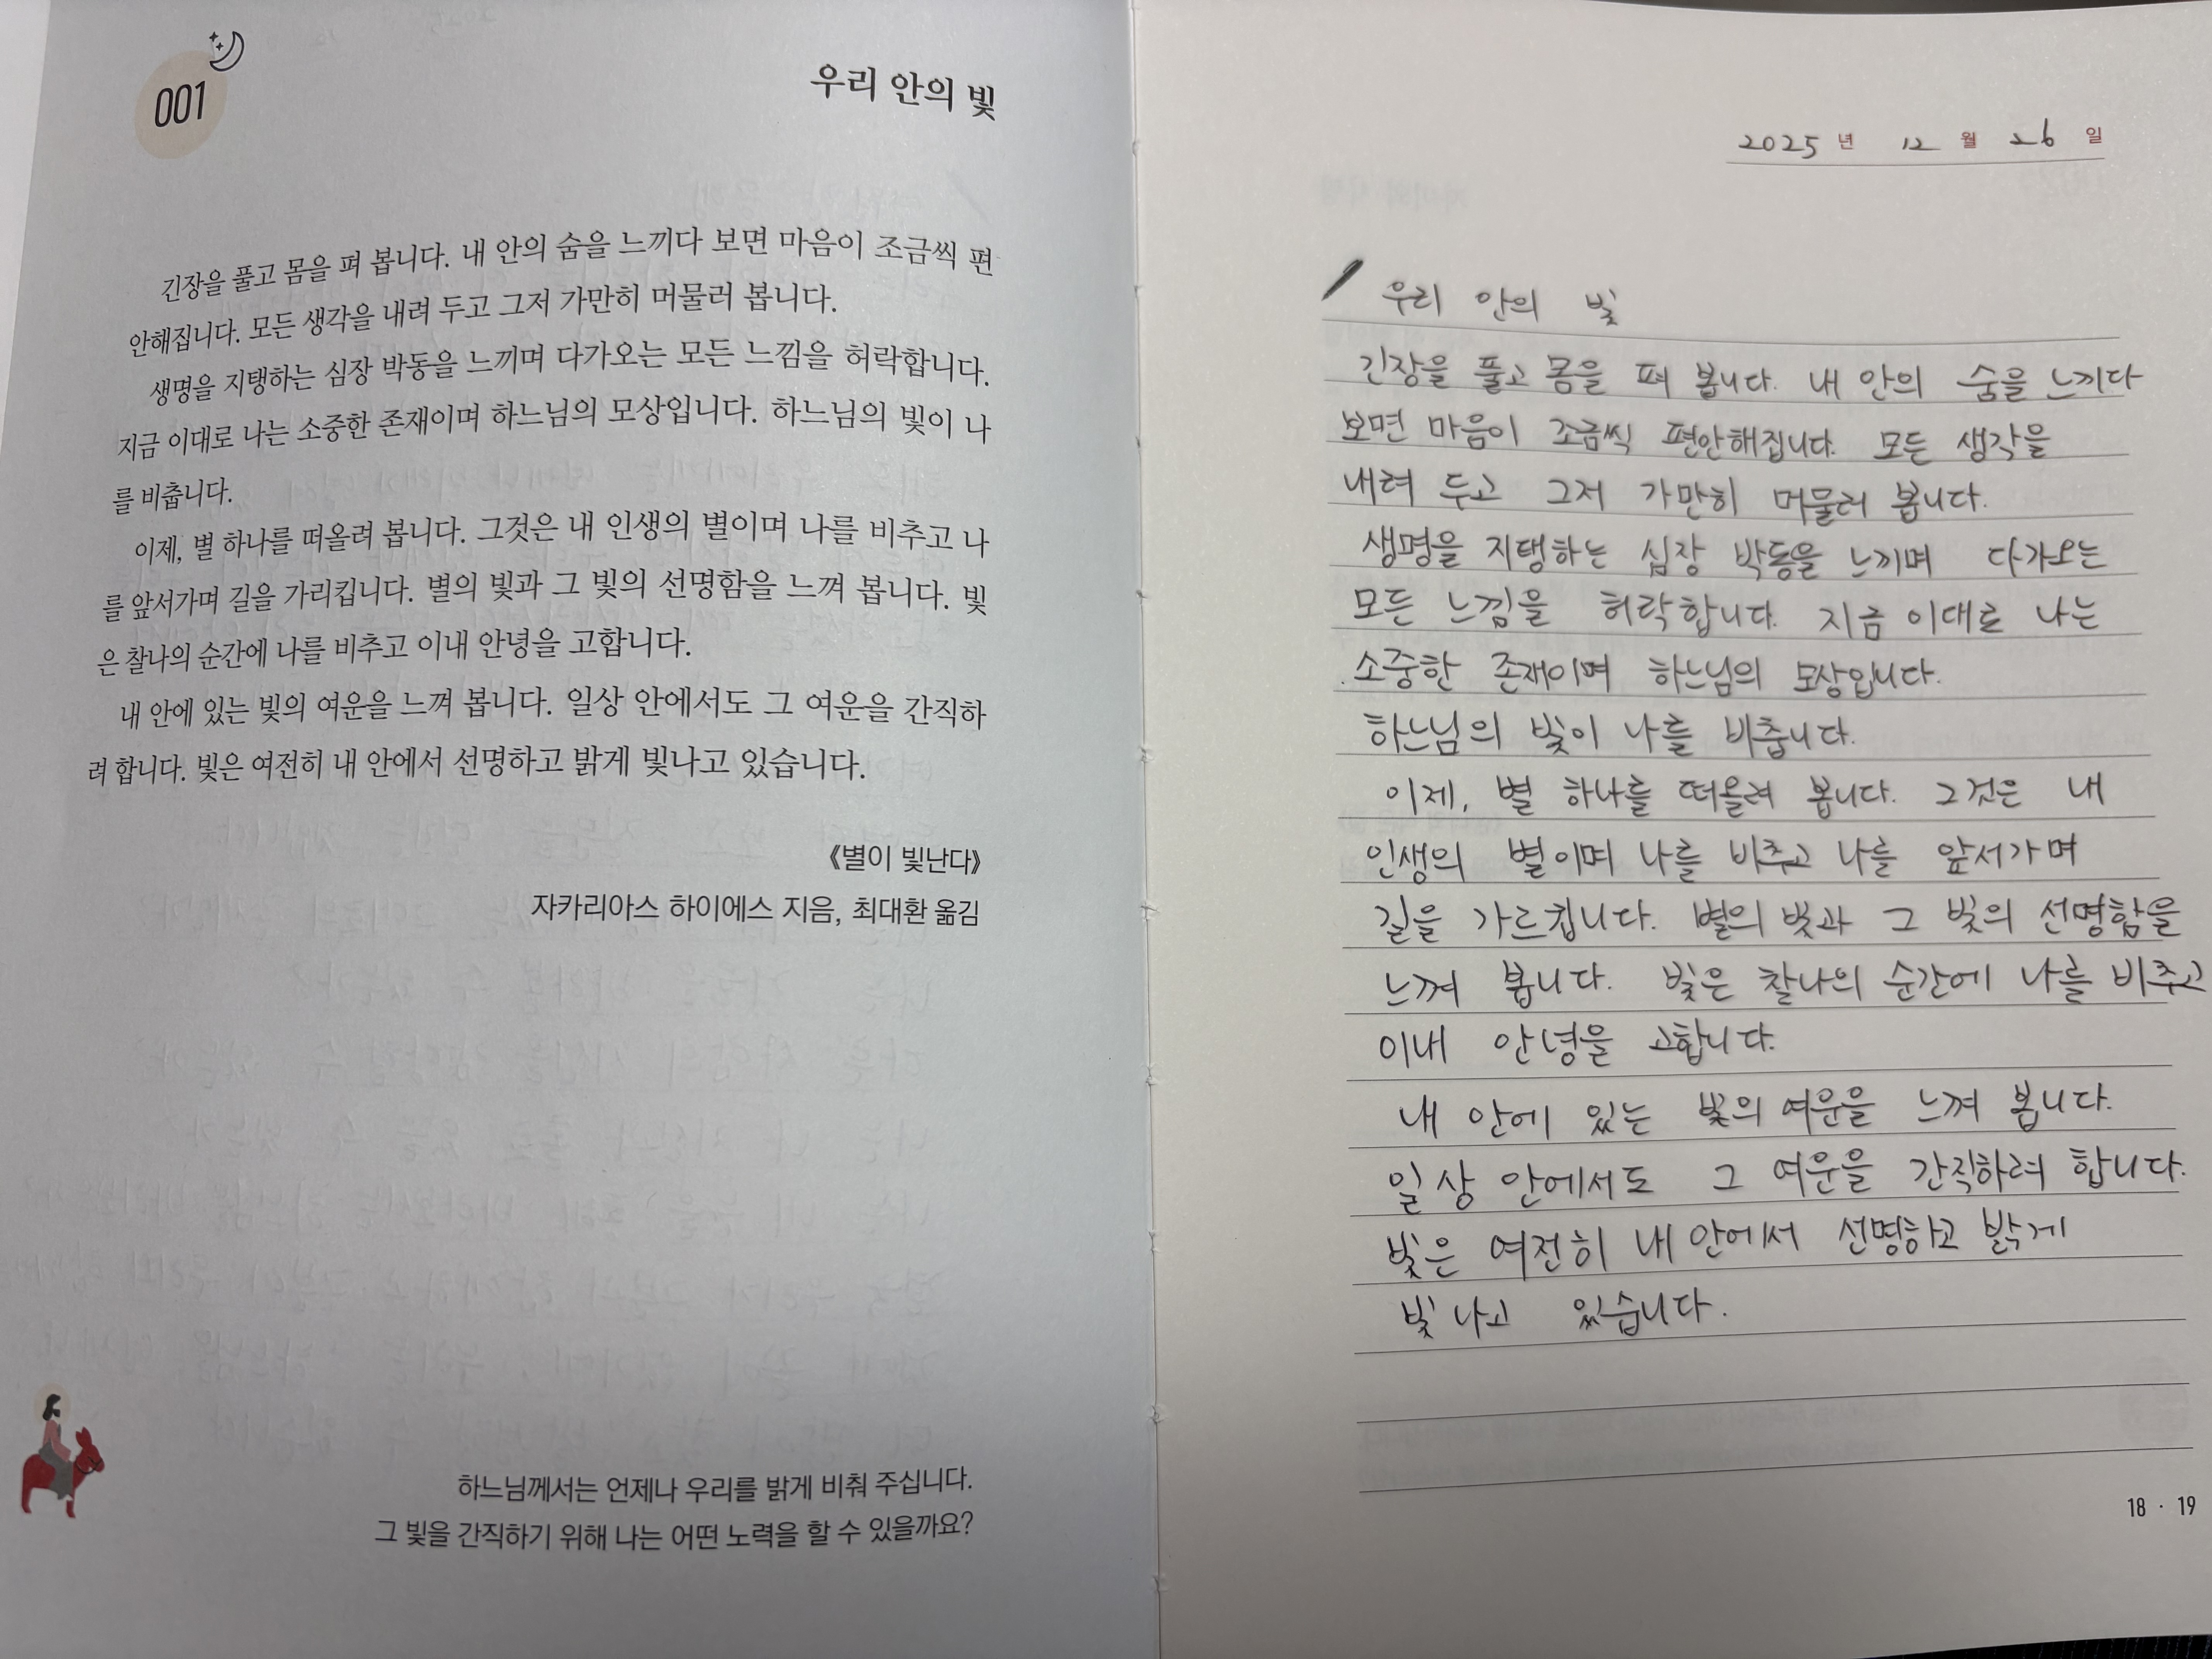 001
우리 안의 빛
긴장을 풀고 몸을 펴 봅니다. 내 안의 숨을 느끼다 보면 마음이 조금씩 편
안해집니다. 모든 생각을 내려 두고 그저 가만히 머물러 봅니다.
생명을 지탱하는 심장 박동을 느끼며 다가오는 모든 느낌을 허락합니다.
지금 이대로 나는 소중한 존재이며 하느님의 모상입니다. 하느님의 빛이 나
를 비춥니다.
이제, 별 하나를 떠올려 봅니다. 그것은 내 인생의 별이며 나를 비추고 나
를 앞서가며 길을 가리킵니다. 별의 빛과 그 빛의 선명함을 느껴 봅니다. 빛
은 찰나의 순간에 나를 비추고 이내 안녕을 고합니다.
내 안에 있는 빛의 여운을 느껴 봅니다. 일상 안에서도 그 여운을 간직하
려 합니다. 빛은 여전히 내 안에서 선명하고 밝게 빛나고 있습니다.
《별이 빛난다》
자카리아스 하이에스 지음, 최대환 옮김
하느님께서는 언제나 우리를 밝게 비춰 주십니다.
그 빛을 간직하기 위해 나는 어떤 노력을 할 수 있을까요?
2025 년 12 월 26 일
우리 안의 빛
긴장을 풀고 몸을 펴 봅니다. 내 안의 숨을 느끼다
보면 마음이 조금씩 편안해집니다. 모든 생각을
내려 두고 그저 가만히 머물러 봅니다.
생명을 지탱하는 심장 박동을 느끼며 다가오는
모든 느낌을 허락합니다. 지금 이대로 나는
소중한 존재이며 하느님의 모상입니다.
하느님의 빛이 나를 비춥니다.
이제, 별 하나를 떠올려 봅니다. 그것은 내
인생의 별이며 나를 비추고 나를 앞서가며
길을 가르킵니다. 별의 빛과 그 빛의 선명함을
느껴 봅니다. 빛은 찰나의 순간에 나를 비추고
이내 안녕을 고합니다.
내 안에 있는 빛의 여운을 느껴 봅니다.
일상 안에서도 그 여운을 간직하려 합니다.
빛은 여전히 내 안에서 선명하고 밝게
빛나고 있습니다.
18 · 19